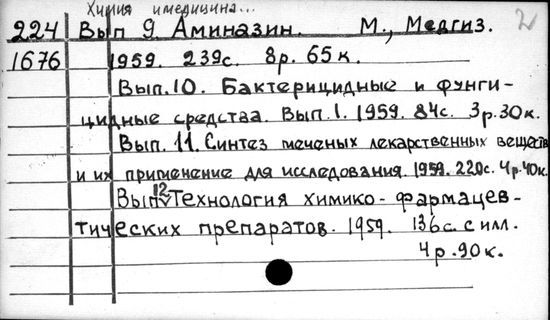 Химия и медицина...
2
224 Вып 9. Аминазин. М., Медгиз.
1676 1959. 239с. 8р. 65к.
Вып.10. Бактерицидные и фунги-
цидные средства. Вып.1. 1959. 84с. 3р.30к.
Вып. 11. Синтез меченых лекарственных веществ
и их применение для исследования. 1959. 220с. 4р.40к.
Вып 12 Технология химико-фармацев-
тических препаратов. 1959. 136с. с илл.
4р.90к.